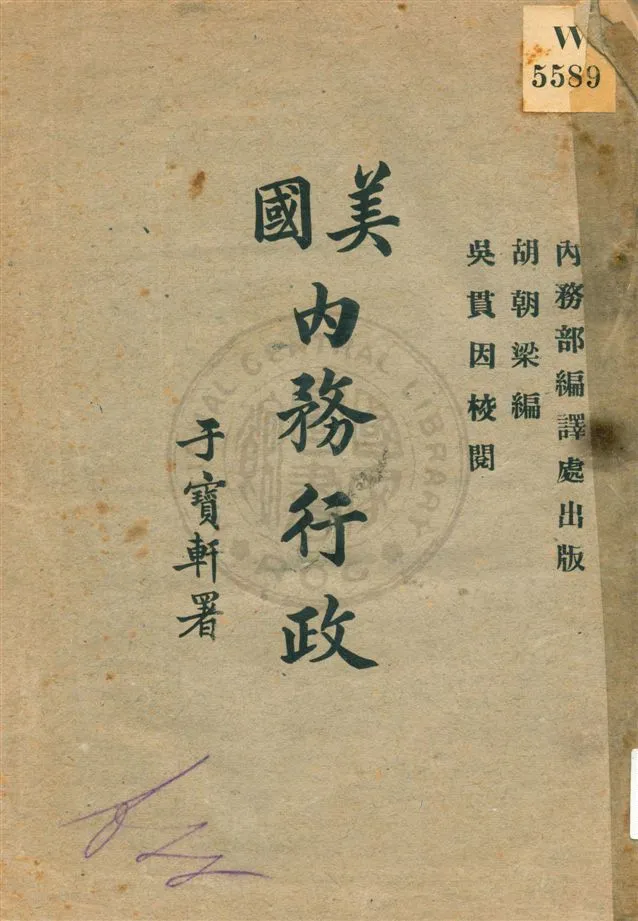 W
5589
內務部編譯處出版
胡朝梁編
吳貫因校閱
美國
內務行政
于寶軒署
NATIONAL CENTRAL LIBRARY
ROC